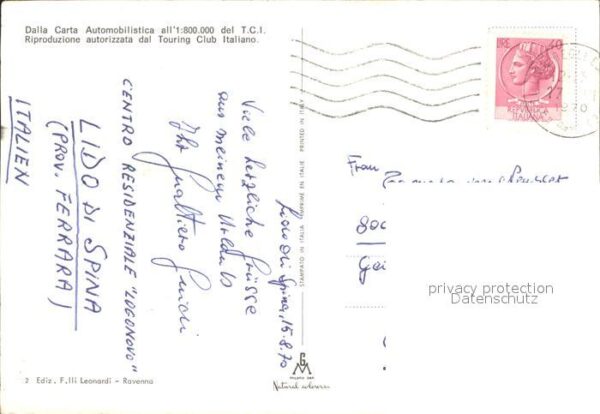 Dalla Carta Automobilistica all'1:800.000 del T.C.I.
Riproduzione autorizzata dal Touring Club Italiano.
LIRE 40
REPVBBLICA
ITALIANA
1970
Lido di Spina, 15.8.70
Viele herzliche Grüsse
aus meinem Urlaub
Ihr Gualtiero Guidi
CENTRO RESIDENZIALE "LOGONOVO"
LIDO DI SPINA
(PROV. FERRARA)
ITALIEN
STAMPATO IN ITALIA IMPRIMÉ EN ITALIE PRINTED IN ITALY
Frau
800
privacy protection
Datenschutz
2 Ediz. F.lli Leonardi - Ravenna
G
M
Natural colours